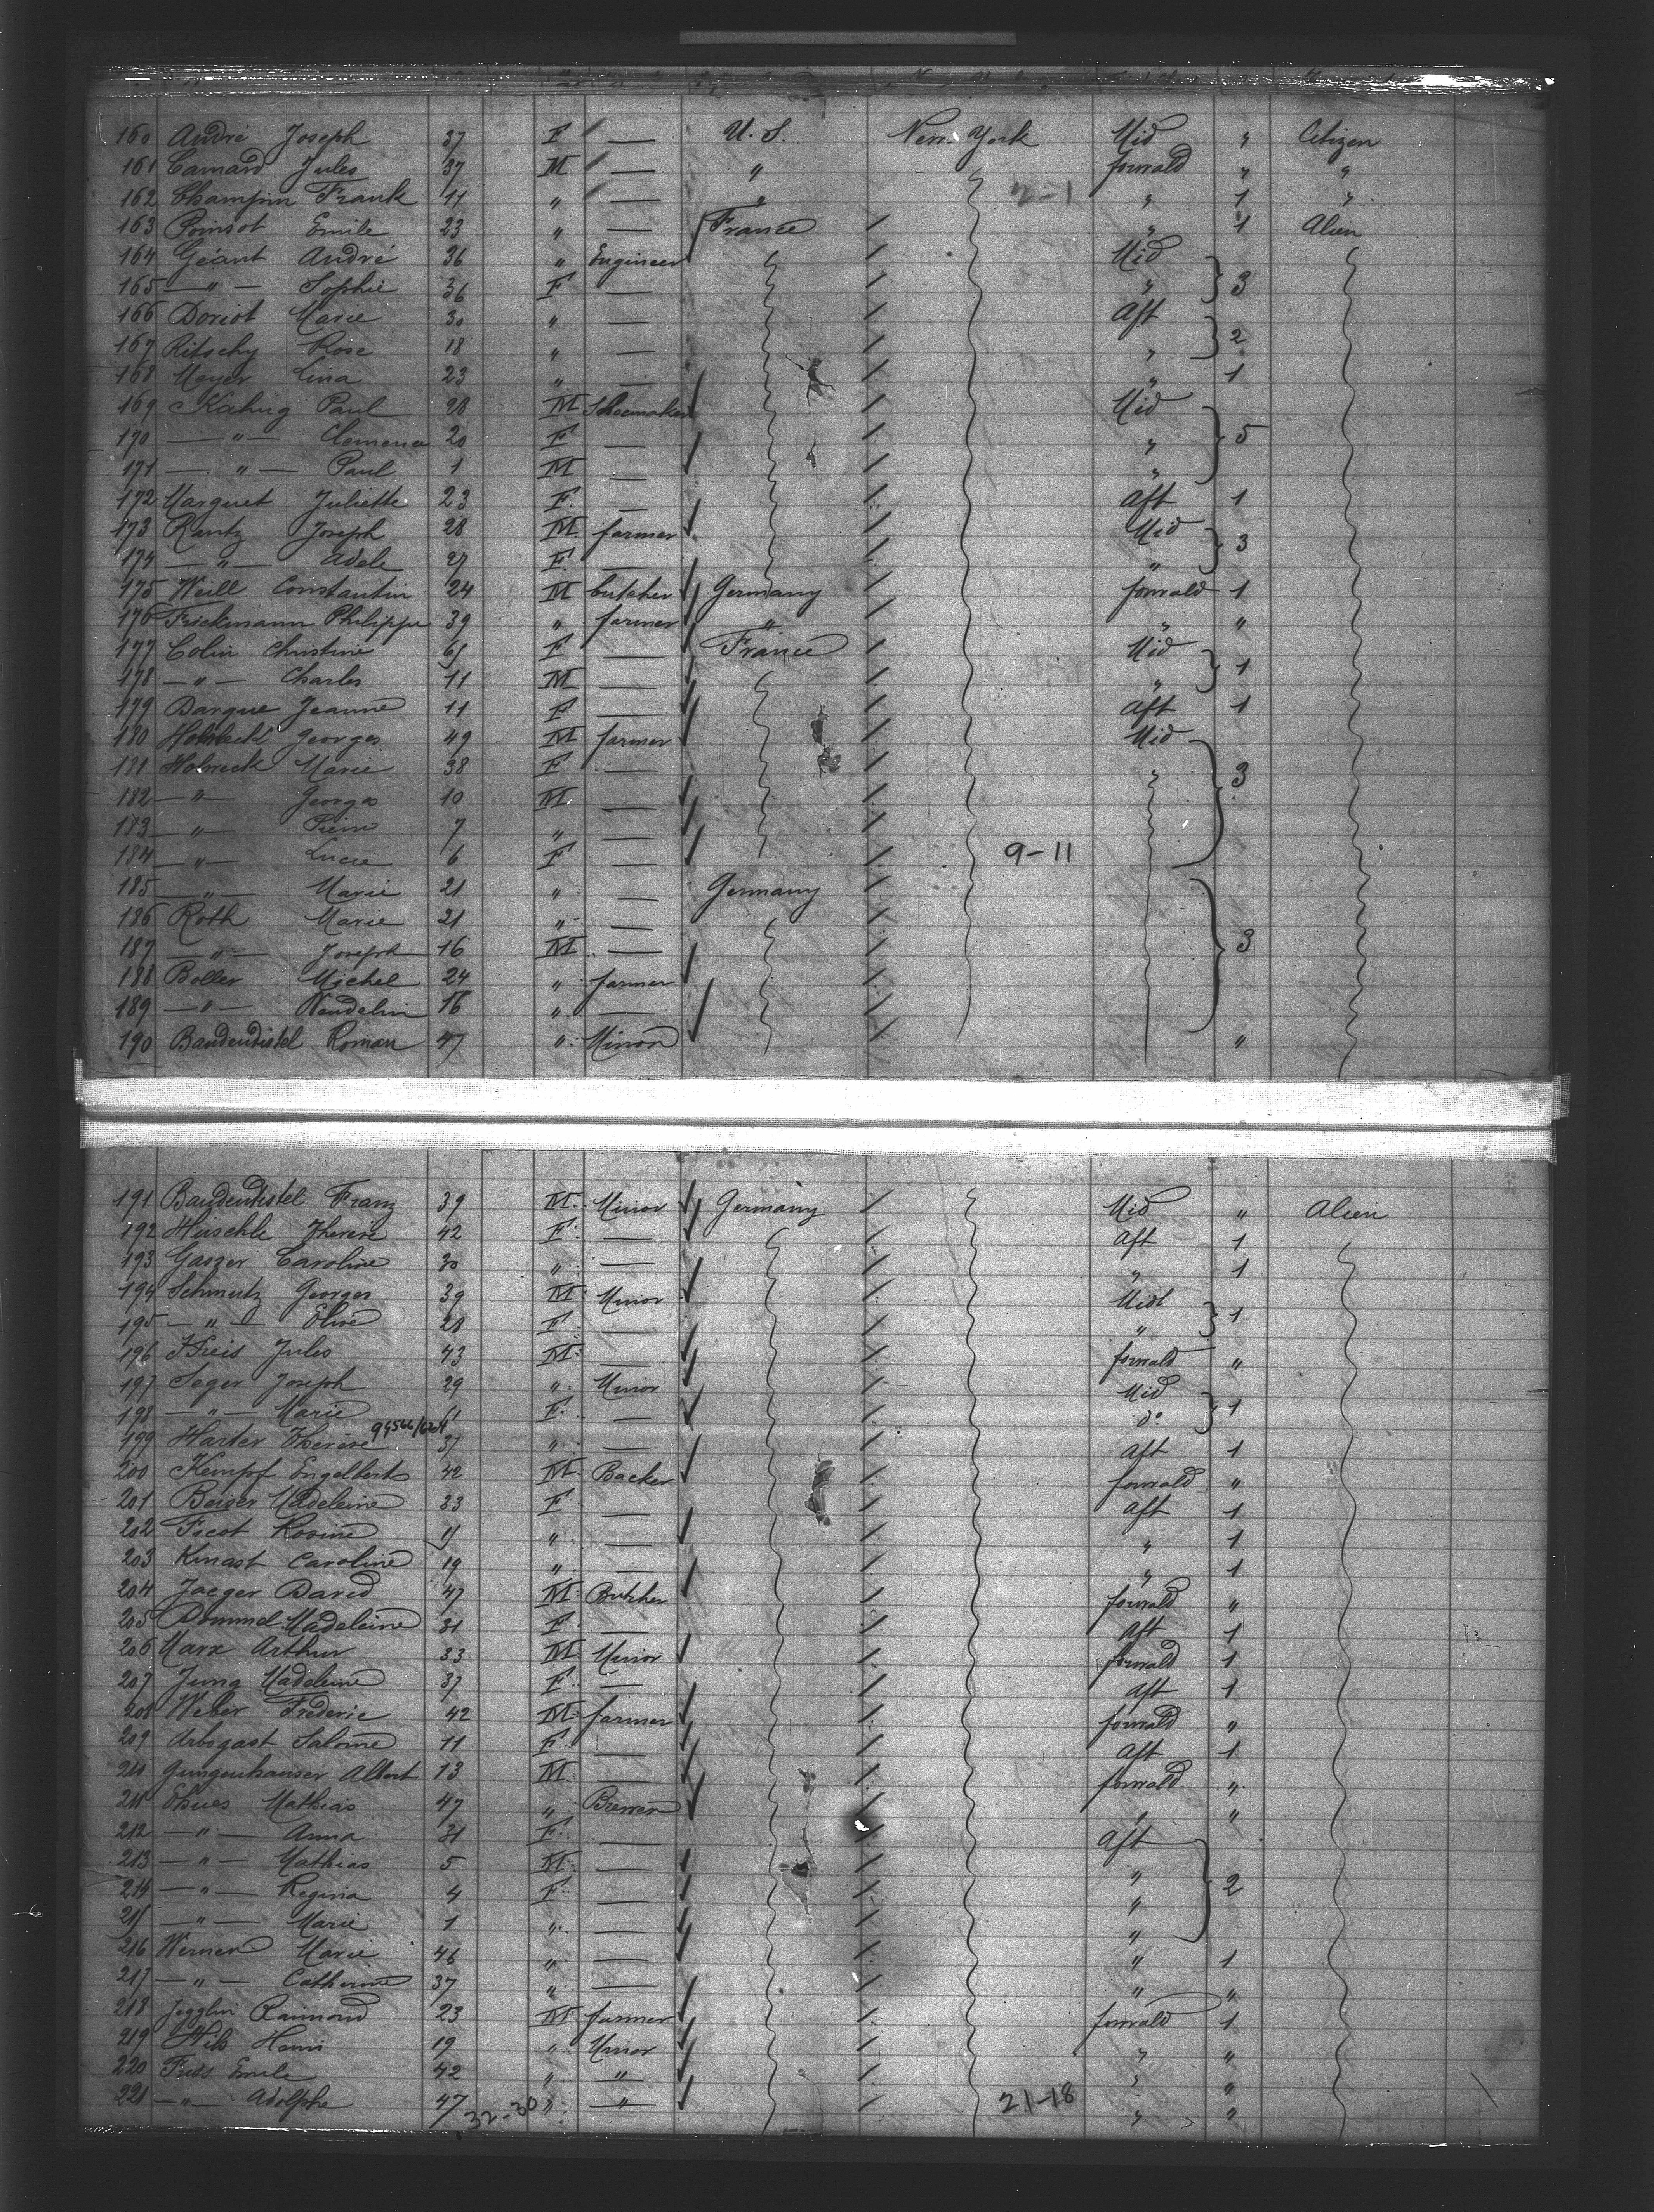 160 André Joseph 37 F — U. S. New-York Mid " Citizen
161 Camard Jules 37 M — " forwald " "
162 Champin Frank 11 " — " 2-1 " 1 "
163 Poinsot Emile 23 " — France / " 1 Alien
164 Géant André 36 " Engineer / Mid
165 — " — Sophie 36 F — / " 3
166 Doriot Marie 30 " — / Aft
167 Ritschy Rose 18 " — / " 2
168 Meyer Lina 23 " — / " 1
169 Kahng Paul 28 M Shoemaker / Mid
170 — " — Clemence 20 F — / " 5
171 — " — Paul 1 M — / "
172 Marquet Juliette 23 F — / Aft 1
173 Rantz Joseph 28 M farmer / Mid
174 — " — Adele 27 F — / " 3
175 Weill Constantin 24 M butcher Germany / forwald 1
176 Frickemann Philippe 39 " farmer " / " "
177 Colin Christine F — France / Mid
178 — " — Charles 11 M — / " 1
179 Barque Jeanne 11 F — / Aft 1
180 Georges 49 M farmer / Mid
181 Holweck Marie 38 F — / " 3
182 — " — Georges 10 M — /
183 — " — 7 " — /
184 — " — Lucie 6 F — / 9-11
185 — " — Marie 21 " — Germany /
186 Roth Marie 21 " — /
187 — " — Joseph 16 M — / 3
188 Boller Michel 24 " farmer /
189 — " — Wendelin 16 " — /
190 Baudendistel Roman 47 " Minor / "
191 Baudendistel Franz 39 M Minor Germany / Mid " Alien
192 Huschle Therese 42 F — / Aft 1
193 Gaszer Caroline 30 " — / " 1
194 Schmutz Georges 39 M Minor / Mid
195 — " — 28 F — / " 1
196 Jules 43 M — / forwald "
197 Seger Joseph 29 " Minor / Mid
198 — " — Marie F — / do 1
199 Harter Therese 37 " — / Aft 1
200 Kempf Engelbert 42 M Backer / forwald "
201 Beiser Madeleine 33 F — / Aft 1
202 Ficot Rosine 11 " — / " 1
203 Knast Caroline 19 " — / " 1
204 Jaeger David 47 M Butcher / forwald "
205 Dommel Madeleine 31 F — / Aft 1
206 Marx Arthur 33 M Minor / forwald 1
207 Jung Madeleine 37 F — / Aft 1
208 Weber Frederic 42 M farmer / forwald "
209 Arbogast Salome 11 F — / Aft 1
210 Gungenhauser Albert 13 M — / forwald "
211 Mathias 47 " Brewer / " "
212 — " — Anna 31 F — / Aft
213 — " — Mathias 5 M — / "
214 — " — Regina 4 F — / " 2
215 — " — Marie 1 " — / "
216 Werner Marie 46 " — / " 1
217 — " — Catherine 37 " — / " "
218 Raimond 23 M farmer / forwald 1
219 Henri 19 " Minor / " "
220 Emile 42 " " / " "
221 — " — Adolphe 47 " " / 21-18 " "
32-30